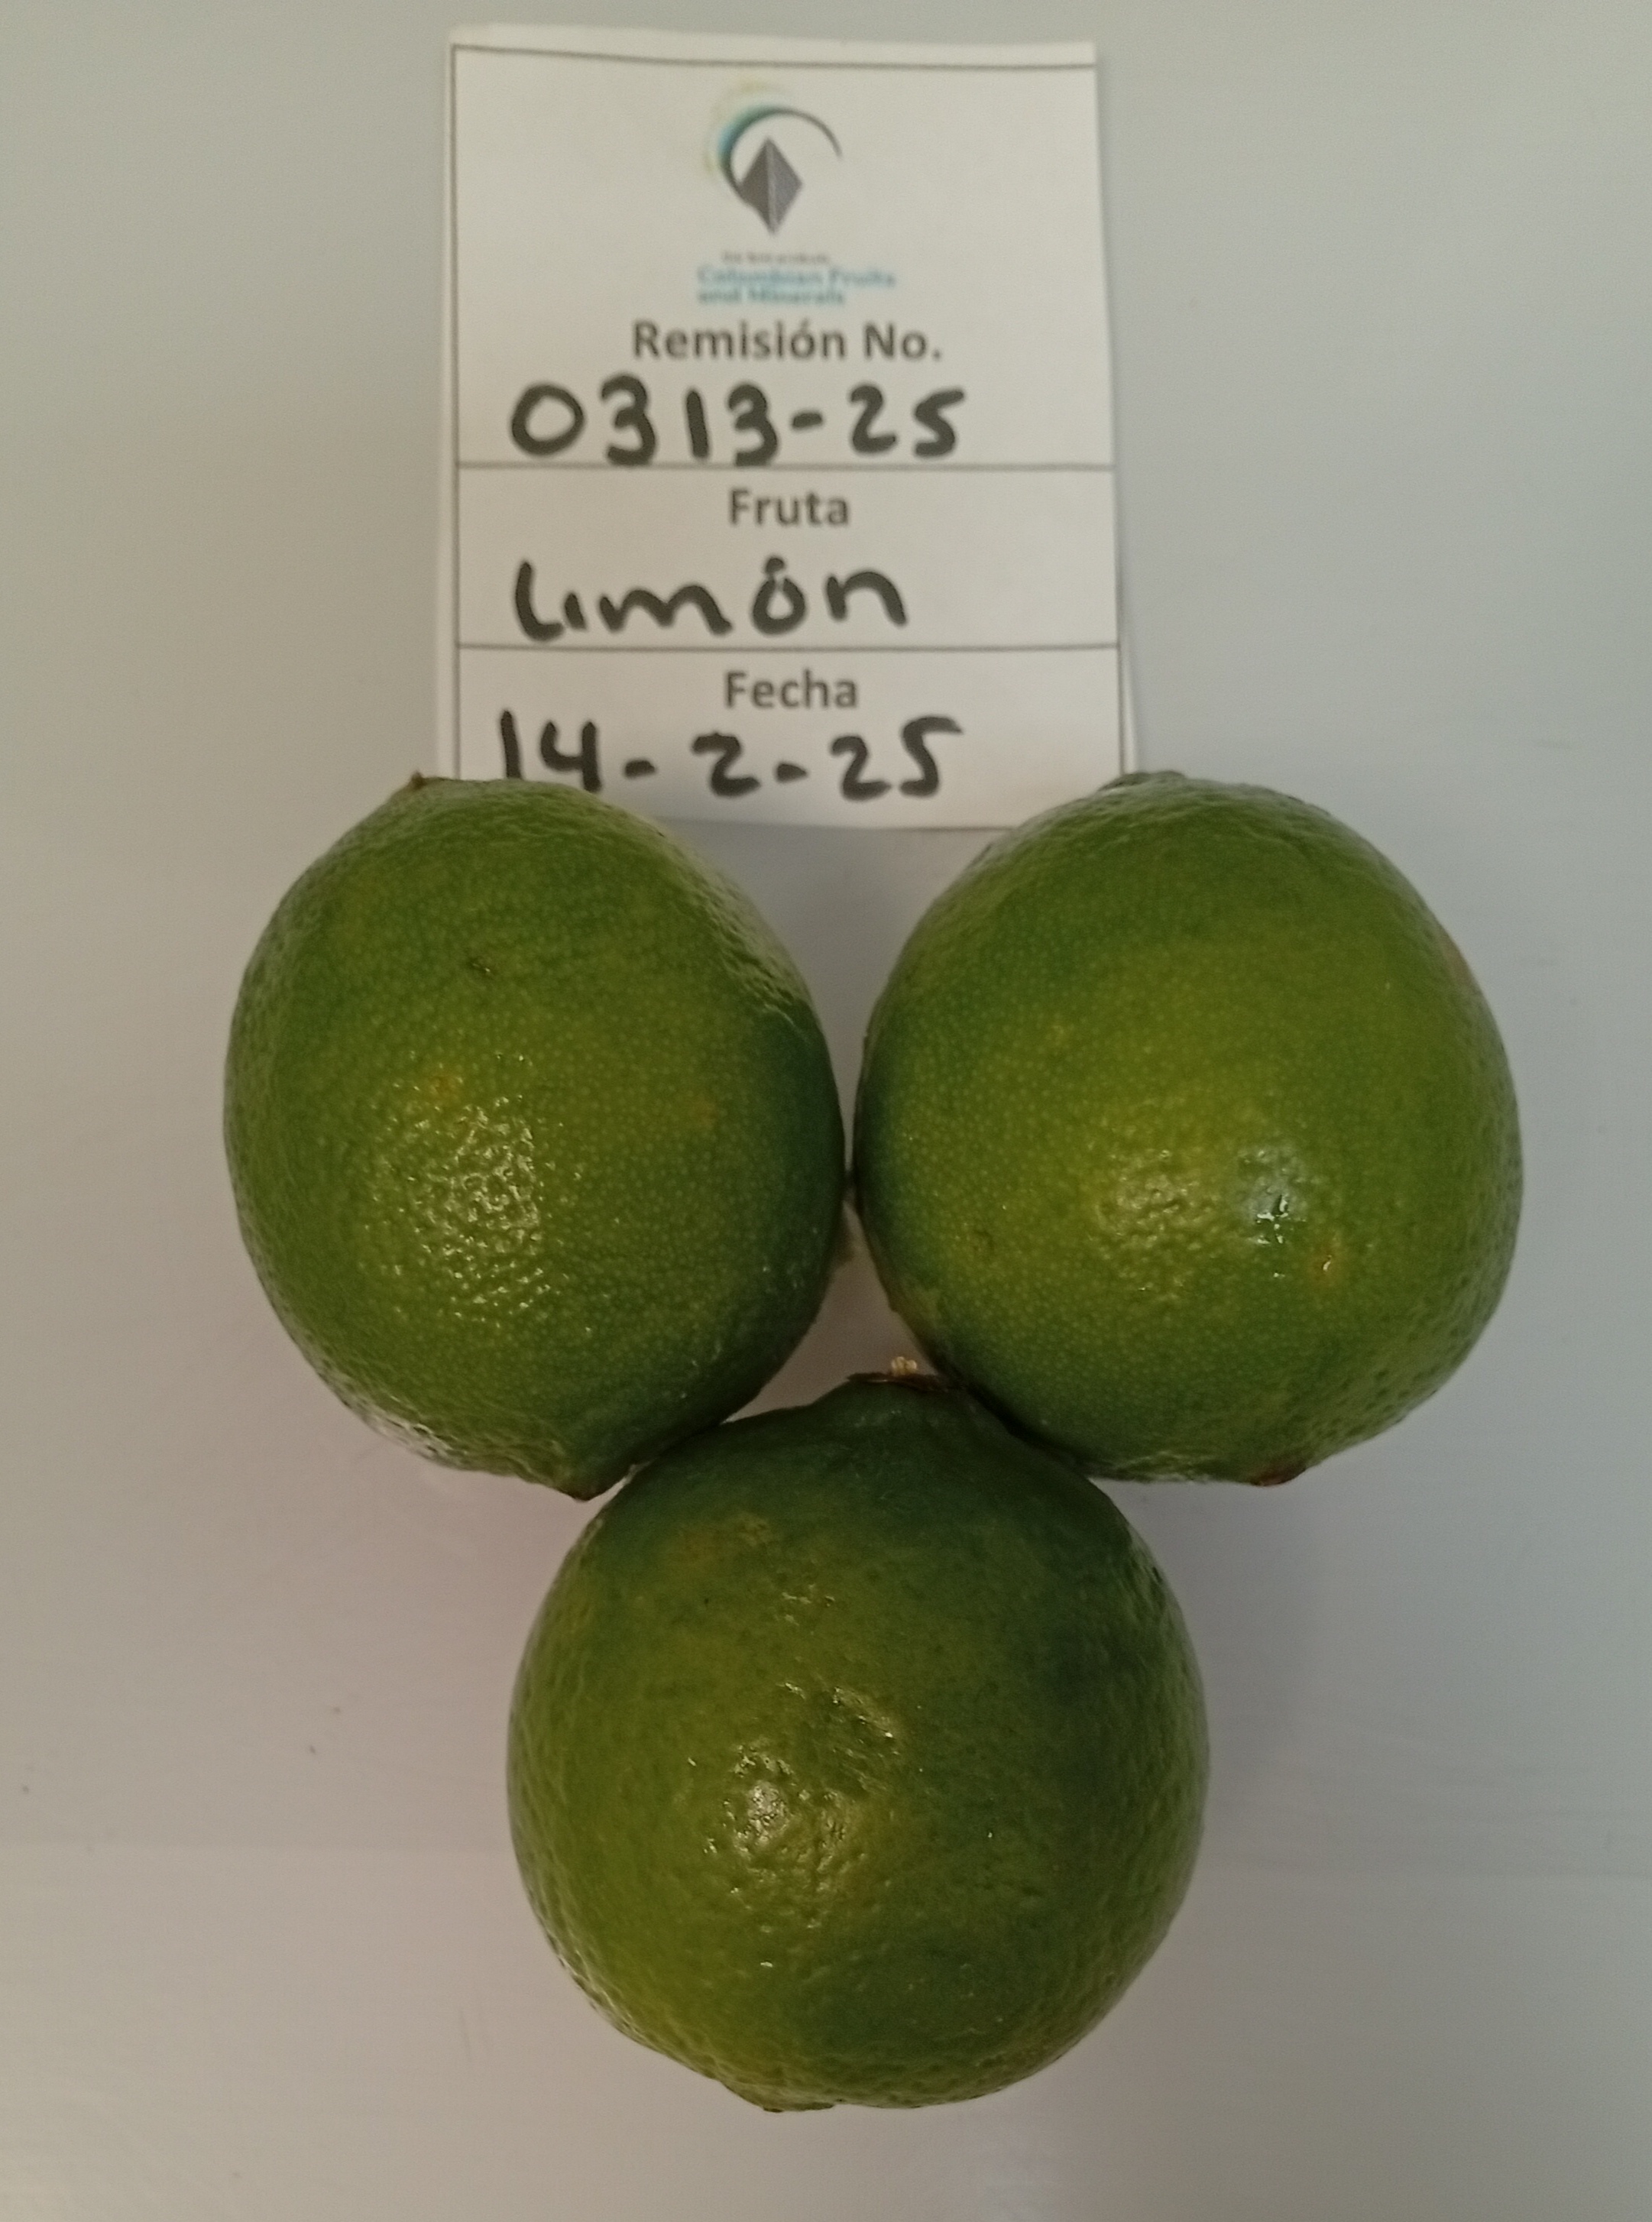 Colombian Fruits
and Minerals
Remisión No.
0313-25
Fruta
Limón
Fecha
14-2-25